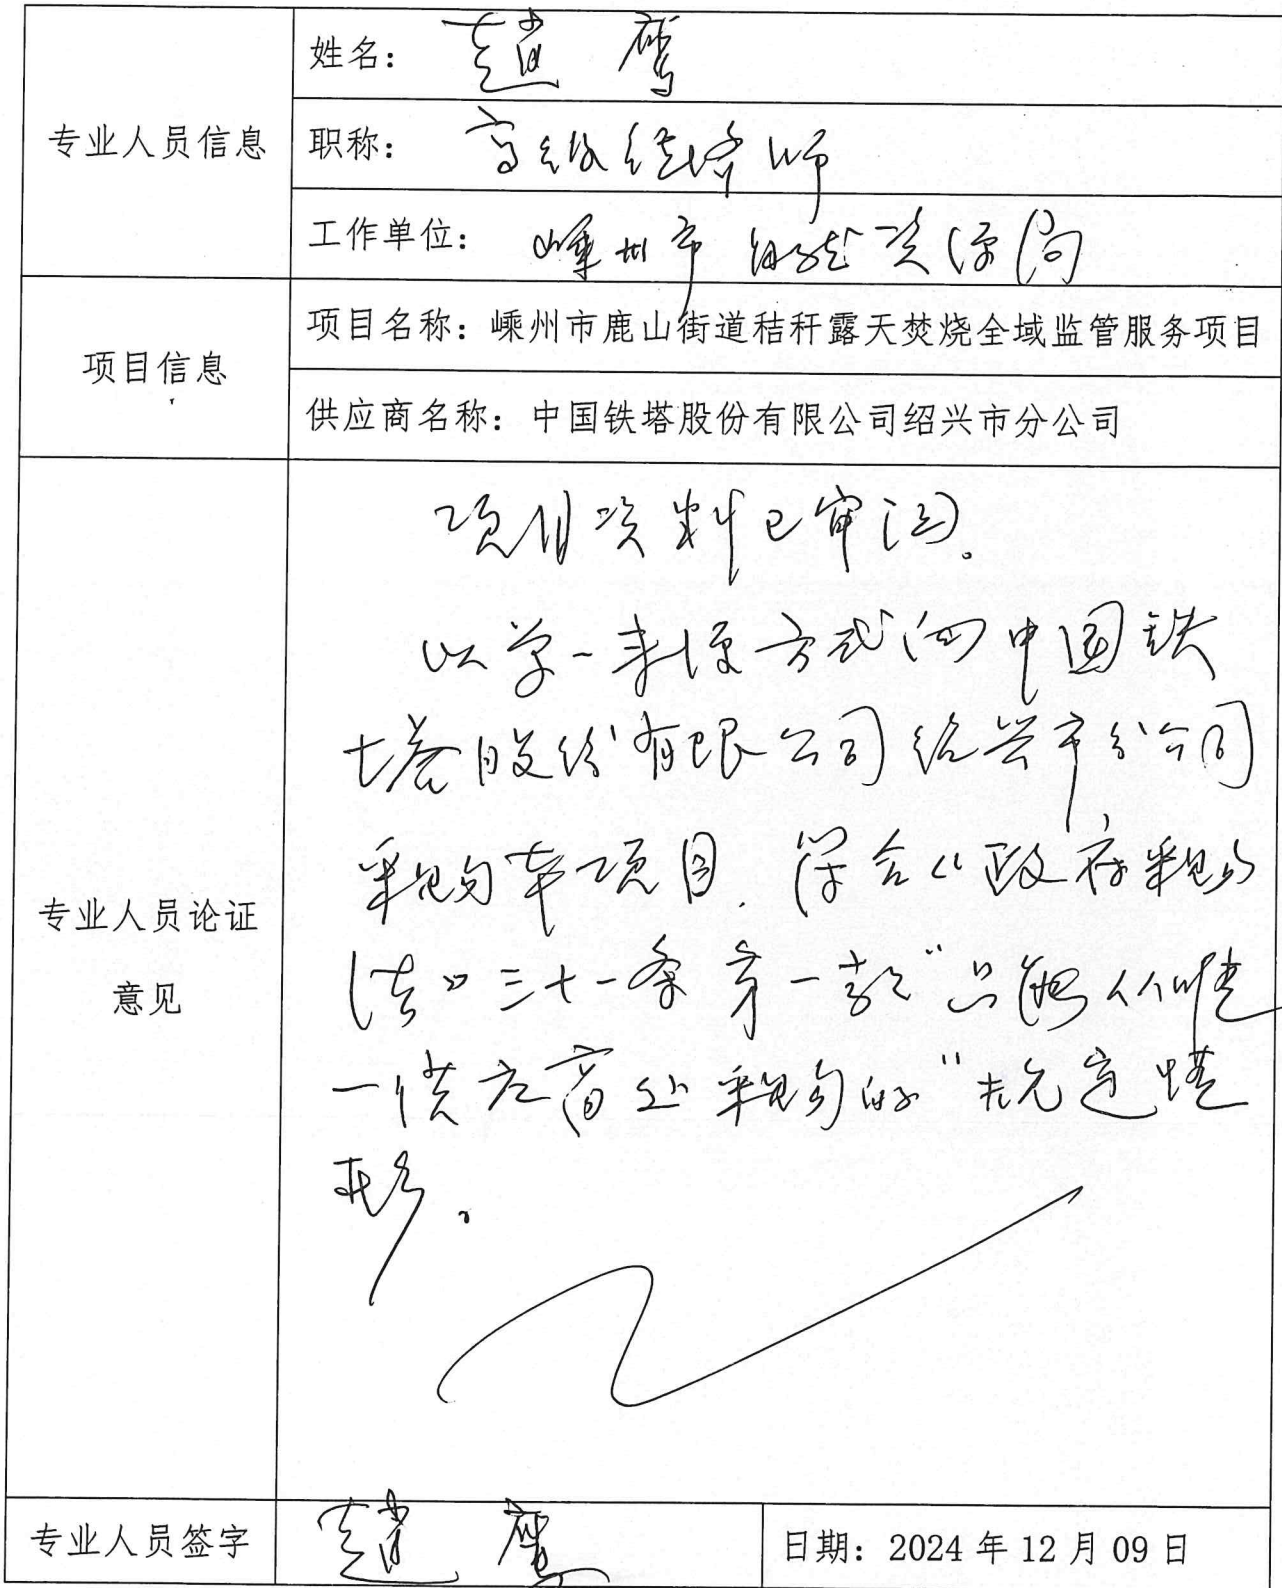 专业人员信息
姓名：趙鹰
职称：高级经济师
工作单位：嵊州市自然资源局
项目信息
项目名称：嵊州市鹿山街道秸秆露天焚烧全域监管服务项目
供应商名称：中国铁塔股份有限公司绍兴市分公司
专业人员论证
意见
项目资料已审阅。
以单一来源方式向中国铁
塔股份有限公司绍兴市分公司
采购本项目，符合《政府采购
法》三十一条第一款“只能从唯
一供应商处采购的”规定情
形。
专业人员签字
趙鹰
日期：2024年12月09日